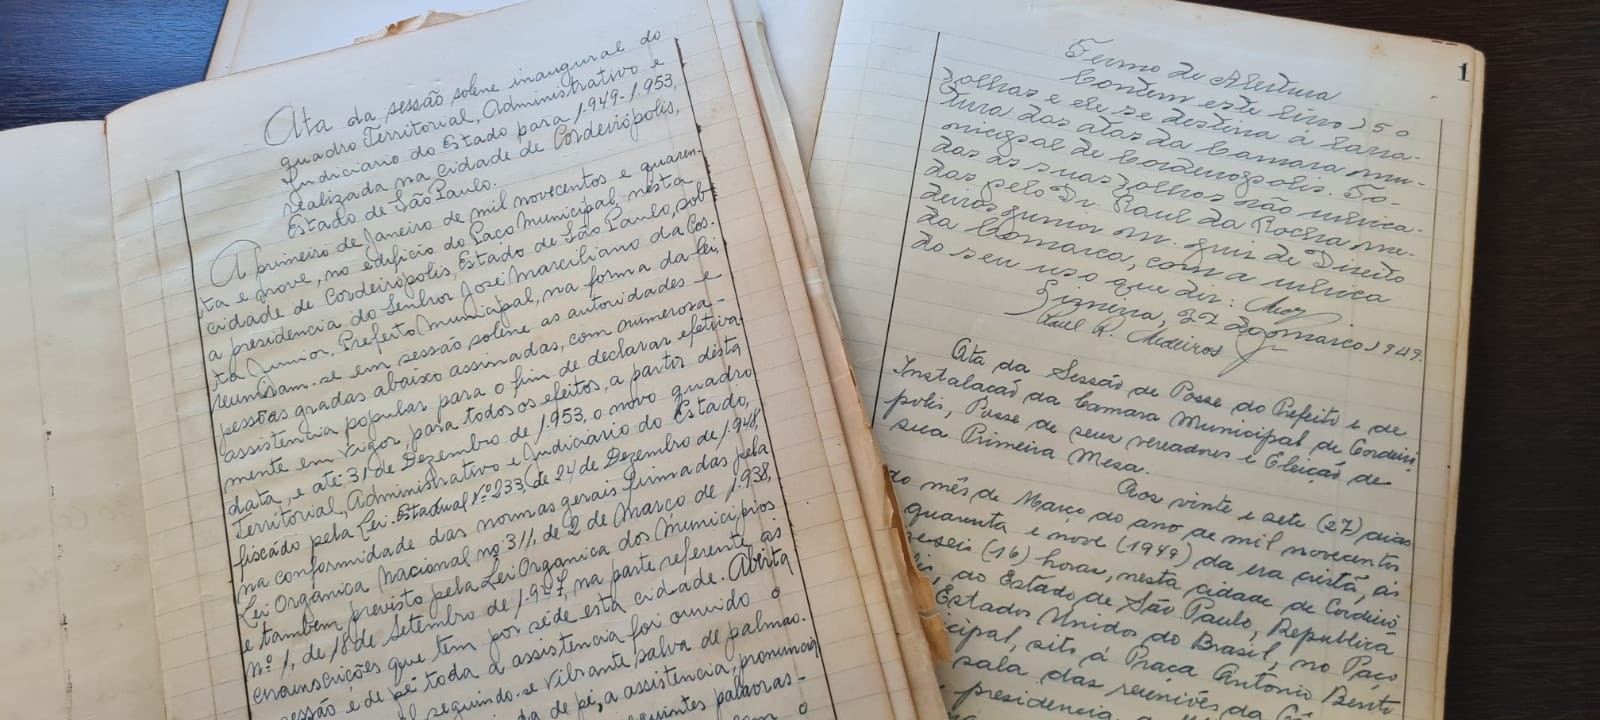 Ata da sessão solene inaugural do
quadro Territorial, Administrativo e
Judiciario do Estado para 1.949-1.953,
realizada na cidade de Cordeirópolis,
Estado de São Paulo.
A primeiro de Janeiro de mil novecentos e quaren-
ta e nove, no edificio do Paço Municipal, nesta
cidade de Cordeirópolis, Estado de São Paulo, sob
a presidencia do Senhor José Marciliano da Cos-
ta Junior. Prefeito Municipal, na forma da lei,
reuniram-se em sessão solene as autoridades e
pessôas gradas abaixo assinadas, com numerosa
assistencia popular para o fim de declarar efetiva-
mente em vigor, para todos os efeitos, a partir desta
data, e até 31 de Dezembro de 1.953, o novo quadro
Territorial, Administrativo e Judiciario do Estado,
fixado pela Lei Estadual Nº 233, de 24 de Dezembro de 1.948,
na conformidade das normas gerais firmadas pela
Lei Orgânica Nacional nº 311, de 2 de Março de 1.938,
e também previsto pela Lei Organica dos Municipios
nº 1, de 18 de Setembro de 1.947, na parte referente ás
circunscrições que tem por séde esta cidade. Aberta
sessão e de pé toda a assistencia foi ouvido o
seguindo-se vibrante salva de palmas.
da de pé, a assistencia, pronuncia
seguintes palavras-
o
1
Termo de Abertura
Contem este livro 150
folhas e ele se destina á lavra-
tura das atas da Camara mu-
nicipal de Cordeiropolis. To-
das as suas folhas são rubrica-
das pelo Dr. Raul da Rocha me-
deiros junior m. juiz de Direito
da Comarca, com a rubrica
do seu uso que diz:
Limeira, 22 de março 1949.
Raul R. Medeiros Jr
Ata da Sessão de Posse do Prefeito e de
Instalação da Camara Municipal de Cordeiro
polis, Posse de seus vereadores e Eleição de
sua Primeira Mesa.
Aos vinte e sete (27) dias
do mês de Março do ano de mil novecentos
quarenta e nove (1949) da era cristã, ás
zeseis (16) horas, nesta cidade de Cordeiro
do Estado de São Paulo, Republica
Estados Unidos do Brasil, no Paço
cipal, sito á Praça Antonio Bento
sala das reuniões da
presidencia